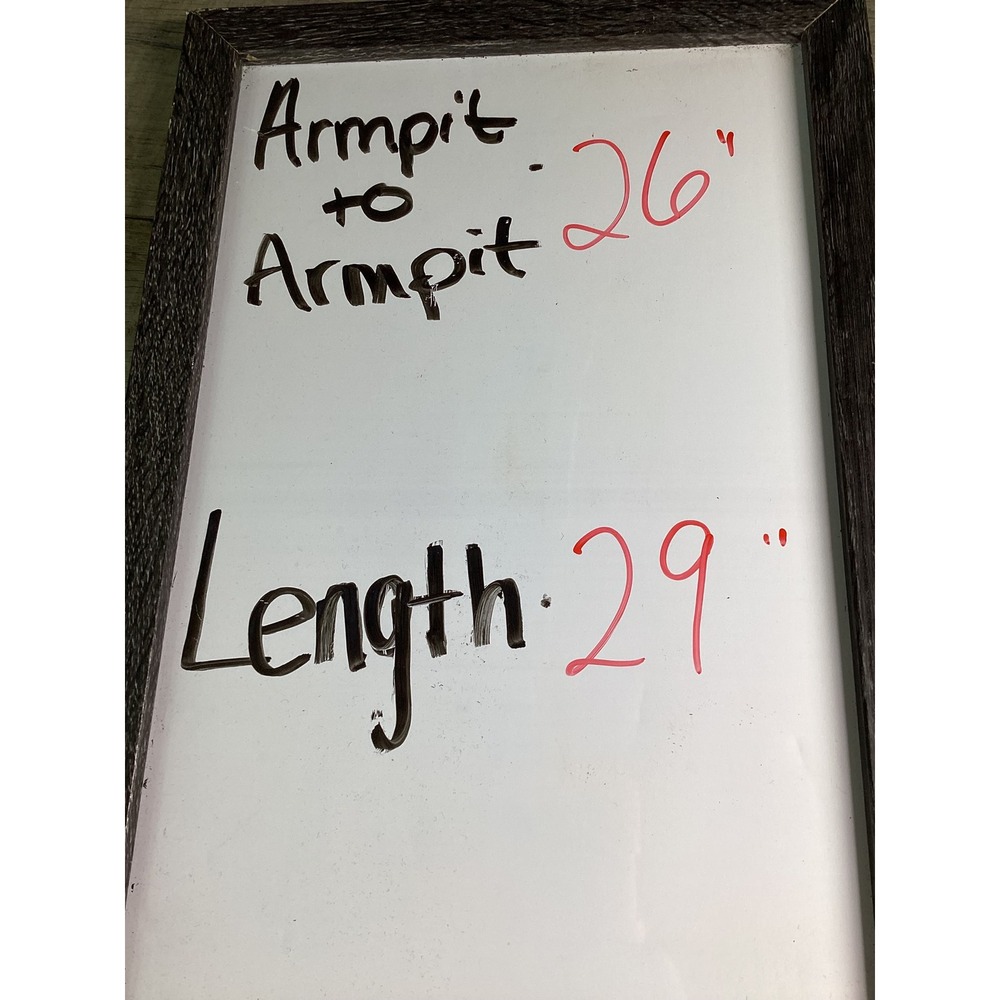 Armpit
to
Armpit - 26"
Length - 29"